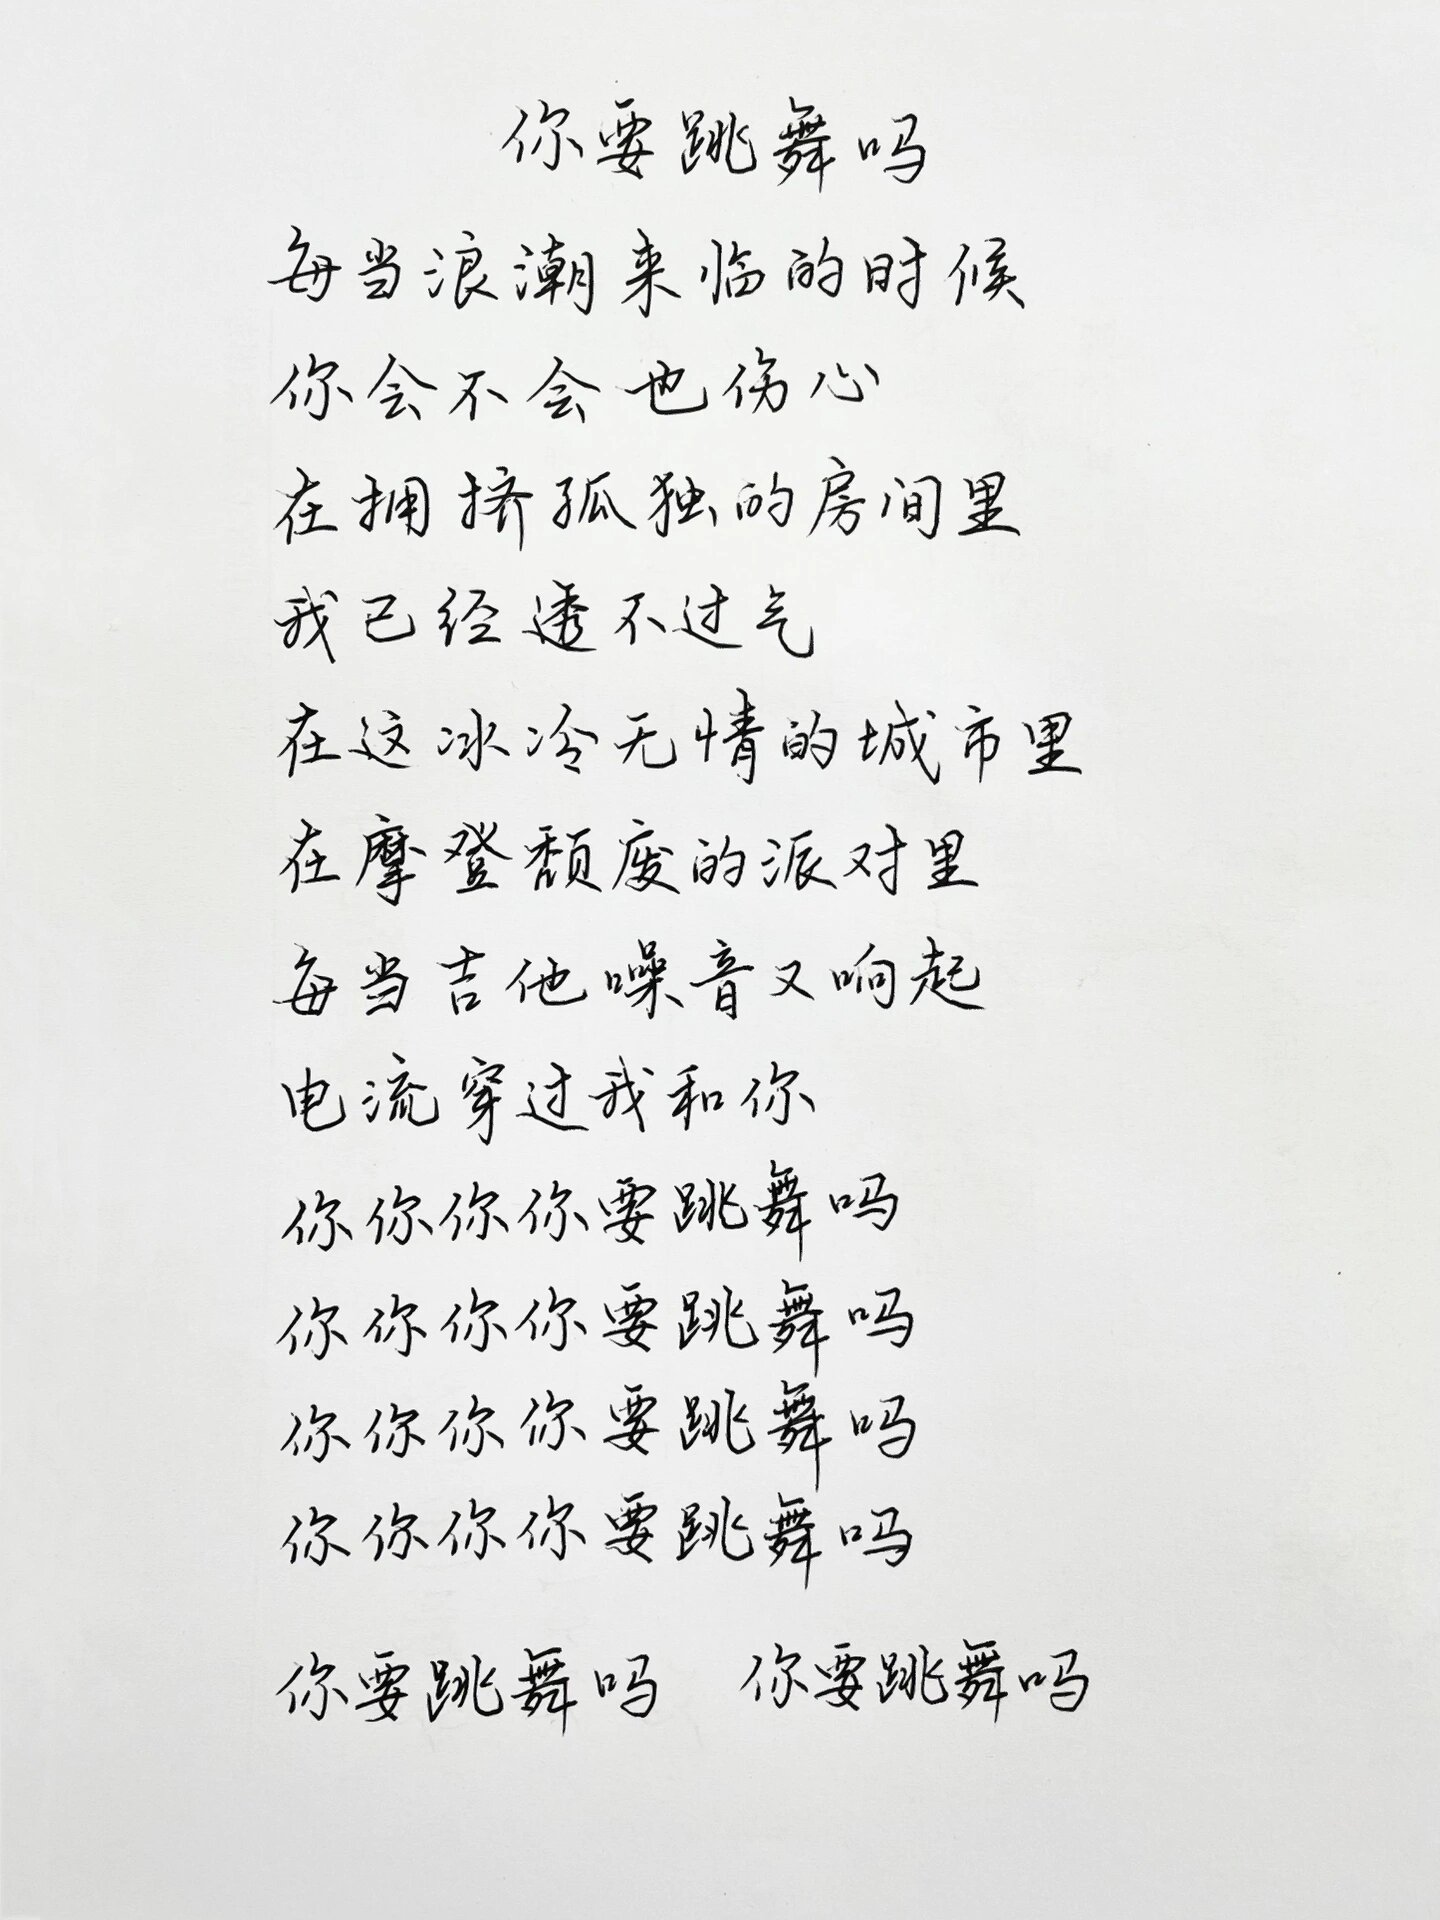 你要跳舞吗
每当浪潮来临的时候
你会不会也伤心
在拥挤孤独的房间里
我已经透不过气
在这冰冷无情的城市里
在摩登颓废的派对里
每当吉他噪音又响起
电流穿过我和你
你你你你要跳舞吗
你你你你要跳舞吗
你你你你要跳舞吗
你你你你要跳舞吗
你要跳舞吗 你要跳舞吗